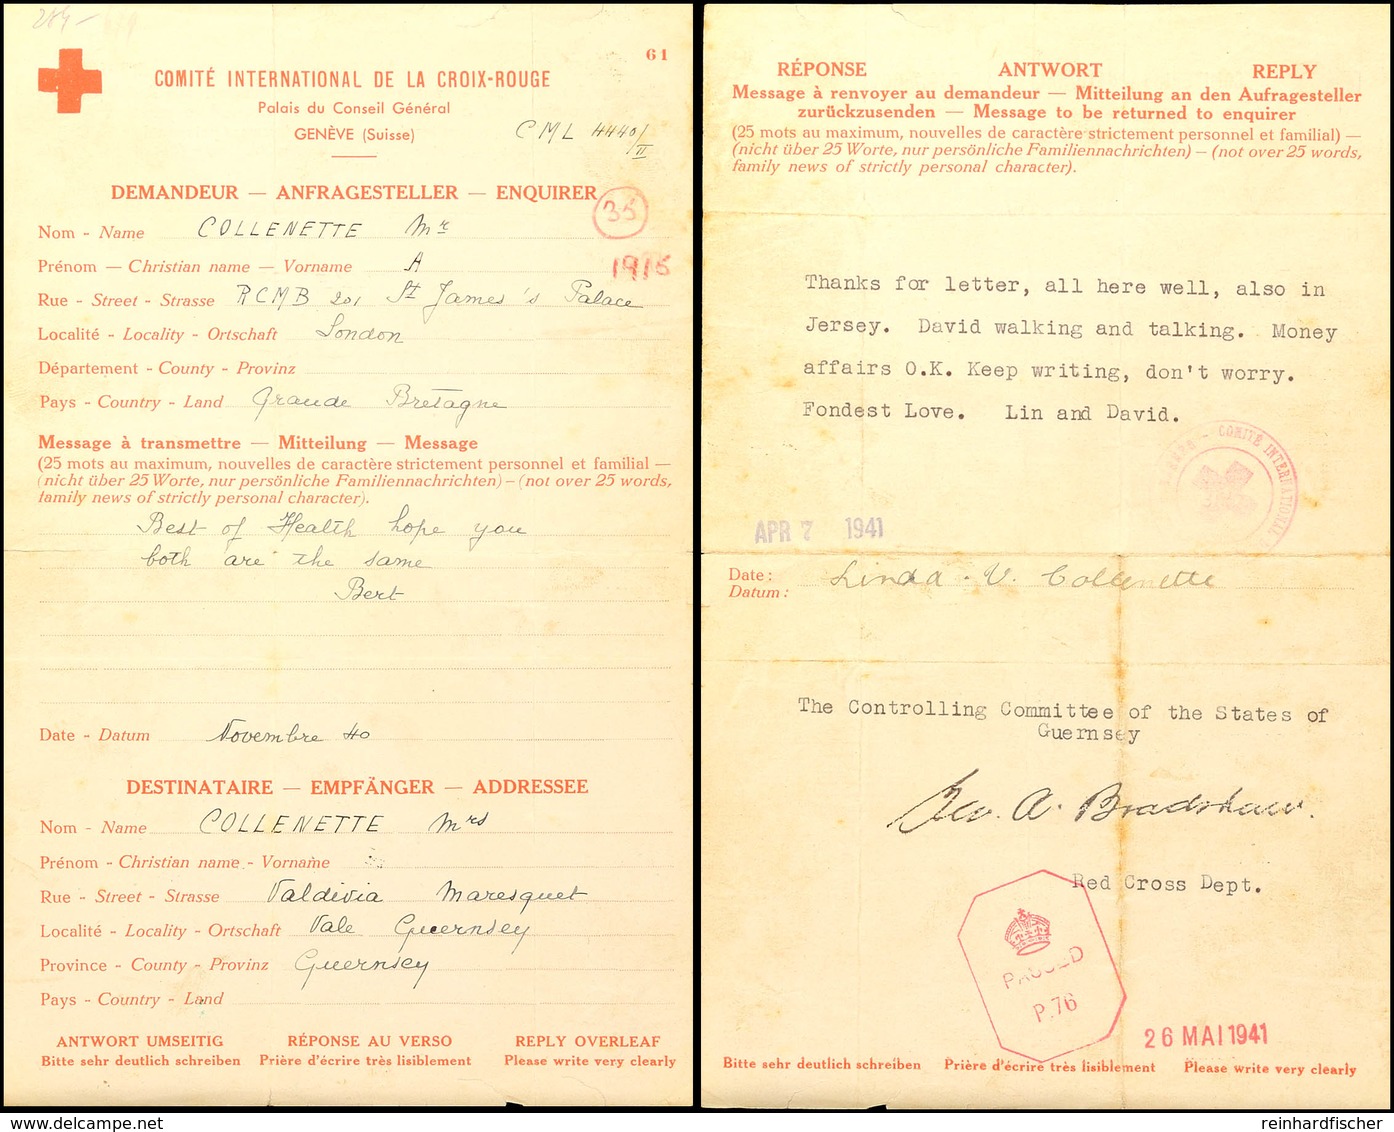 264-
61
COMITÉ INTERNATIONAL DE LA CROIX-ROUGE
Palais du Conseil Général
GENÈVE (Suisse)
CML 4440/II
DEMANDEUR — ANFRAGESTELLER — ENQUIRER
35
Nom - Name COLLENETTE Mr
1915
Prénom — Christian name — Vorname A
Rue - Street - Strasse RCMB 201 St James's Palace
Localité - Locality - Ortschaft London
Département - County - Provinz
Pays - Country - Land Grande Bretagne
Message à transmettre — Mitteilung — Message
(25 mots au maximum, nouvelles de caractère strictement personnel et familial —
(nicht über 25 Worte, nur persönliche Familiennachrichten) – (not over 25 words,
family news of strictly personal character).
Best of Health hope you
both are the same
Bert
Date - Datum Novembre 40
DESTINATAIRE — EMPFÄNGER — ADDRESSEE
Nom - Name COLLENETTE Mrs
Prénom - Christian name - Vorname
Rue - Street - Strasse Valdivia Maresquet
Localité - Locality - Ortschaft Vale Guernsey
Province - County - Provinz Guernsey
Pays - Country - Land
ANTWORT UMSEITIG RÉPONSE AU VERSO REPLY OVERLEAF
Bitte sehr deutlich schreiben Prière d'écrire très lisiblement Please write very clearly
RÉPONSE ANTWORT REPLY
Message à renvoyer au demandeur — Mitteilung an den Aufragesteller
zurückzusenden — Message to be returned to enquirer
(25 mots au maximum, nouvelles de caractère strictement personnel et familial) —
(nicht über 25 Worte, nur persönliche Familiennachrichten) – (not over 25 words,
family news of strictly personal character).
Thanks for letter, all here well, also in
Jersey. David walking and talking. Money
affairs O.K. Keep writing, don't worry.
Fondest Love. Lin and David.
COMITÉ INTERNATIONAL
APR 7 1941
Date: Linda . V. Collenette
Datum:
The Controlling Committee of the States of
Guernsey
A. Bradshaw.
Red Cross Dept.
PASSED
P.76
26 MAI 1941
Bitte sehr deutlich schreiben Prière d'écrire très lisiblement Please write very clearly
www.delcampe.net
reinhardfischer